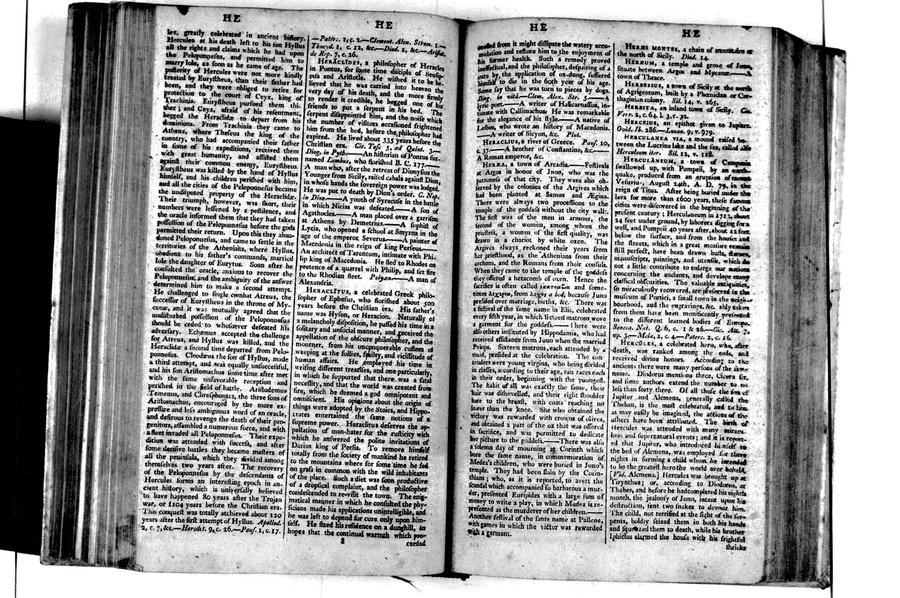 HE
les, greatly celebrated in ancient history.
Hercules at his death left to his son Hyllus
all the rights and claims which he had upon
the Peloponnesus, and permitted him to
marry Iole, as soon as he came of age. The
posterity of Hercules were not more kindly
treated by Eurystheus, than their father had
been, and they were obliged to retire for
protection to the court of Ceyx, king of
Trachinia. Eurystheus pursued them thi-
ther; and Ceyx, afraid of his resentment,
begged the Heraclidæ to depart from his
dominions. From Trachinia they came to
Athens, where Theseus the king of the
country, who had accompanied their father
in some of his expeditions, received them
with great humanity, and assisted them
against their common enemy, Eurystheus.
Eurystheus was killed by the hand of Hyllus
himself, and his children perished with him,
and all the cities of the Peloponnesus became
the undisputed property of the Heraclidæ.
Their triumph, however, was short, their
numbers were lessened by a pestilence, and
the oracle informed them that they had taken
possession of the Peloponnesus before the gods
permitted their return. Upon this they aban-
doned Peloponnesus, and came to settle in the
territories of the Athenians, where Hyllus,
obedient to his father's commands, married
Iole the daughter of Eurytus. Soon after he
consulted the oracle, anxious to recover the
Peloponnesus, and the ambiguity of the answer
determined him to make a second attempt.
He challenged to single combat Atreus, the
successor of Eurystheus in the throne of My-
cenæ, and it was mutually agreed that the
undisturbed possession of the Peloponnesus
should be ceded to whosoever defeated his
adversary. Echemus accepted the challenge
for Atreus, and Hyllus was killed, and the
Heraclidæ a second time departed from Pelo-
ponnesus. Cleodæus the son of Hyllus, made
a third attempt, and was equally unsuccessful,
and his son Aristomachus some time after met
with the same unfavorable reception and
perished in the field of battle. Aristodemus
Temenus, and Chresphontes, the three sons of
Aristomachus, encouraged by the more ex-
pressive and less ambiguous word of an oracle,
and desirous to revenge the death of their pro-
genitors, assembled a numerous force, and with
a fleet invaded all Peloponnesus. Their expe-
dition was attended with success, and after
some decisive battles they became masters of
all the peninsula, which they divided among
themselves two years after. The recovery
of the Peloponnesus by the descendants of
Hercules forms an interesting epoch in an-
cient history, which is universally believed
to have happened 80 years after the Trojan
war, or 1104 years before the Christian era.
This conquest was totally atchieved about 120
years after the first attempt of Hyllus. Apollod.
2, c. 7, &c.—Herodot. 9, c. 26.—Paus. 1, c. 17.
HE
—Paterc. 1, c. 2.—Clement. Alex. Strom. 1.—
Thucyd. 1, c. 12, &c.—Diod. 1, &c.—Aristot.
de Rep. 7, c. 26.
HERACLIDES, a philosopher of Heraclea
in Pontus, for some time disciple of Seusip-
pus and Aristotle. He wished it to be be-
lieved that he was carried into heaven the
very day of his death, and the more firmly
to render it credible, he begged one of his
friends to put a serpent in his bed. The
serpent disappointed him, and the noise which
the number of visitors occasioned frightened
him from the bed, before the philosopher had
expired. He lived about 335 years before the
Christian era. Cic. Tusc. 5. ad Quint. 3.—
Diog. in Pyth.—An historian of Pontus sur-
named Lembus, who florished B. C. 177.—
A man who, after the retreat of Dionysius the
Younger from Sicily, raised cabals against Dion,
in whose hands the sovereign power was lodged.
He was put to death by Dion's order. C. Nep.
in Dion.—A youth of Syracuse in the battle
in which Nicias was defeated.—A son of
Agathocles.—A man placed over a garrison
at Athens by Demetrius.—A sophist of
Lycia, who opened a school at Smyrna in the
age of the emperor Severus.—A painter of
Macedonia in the reign of king Perseus.—
An architect of Tarentum, intimate with Phi-
lip king of Macedonia. He fled to Rhodes on
pretence of a quarrel with Philip, and set fire
to the Rhodian fleet. Polyæn.—A man of
Alexandria.
HERACLITUS, a celebrated Greek philo-
sopher of Ephesus, who florished about 500
years before the Christian era. His father's
name was Hyson, or Heracion. Naturally of
a melancholy disposition, he passed his time in a
solitary and unsocial manner, and received the
appellation of the obscure philosopher, and the
mourner, from his unconquerable custom of
weeping at the follies, frailty, and vicissitude of
human affairs. He employed his time in
writing different treatises, and one particularly,
in which he supported that there was a fatal
necessity, and that the world was created from
fire, which he deemed a god omnipotent and
omniscient. His opinions about the origin of
things were adopted by the Stoics, and Hippo-
crates entertained the same notions of a
supreme power. Heraclitus deserves the ap-
pellation of man-hater for the rusticity with
which he answered the polite invitations of
Darius king of Persia. To remove himself
totally from the society of mankind he retired
to the mountains where for some time he fed
on grass in common with the wild inhabitants
of the place. Such a diet was soon productive
of a dropsical complaint, and the philosopher
condescended to re-visit the town. The enig-
matical manner in which he consulted the phy-
sicians made his applications unintelligible, and
he was left to depend for cure only upon him-
self. He fixed his residence on a dunghill, in
hopes that the continual warmth which pro-
ceeded
HE
ceeded from it might dissipate the watery accu-
mulation and restore him to the enjoyment of
his former health. Such a remedy proved
ineffectual, and the philosopher, despairing of a
cure by the application of ox-dung, suffered
himself to die in the 60th year of his age.
Some say that he was torn to pieces by dogs.
Diog. in vitâ.—Clem. Alex. Str. 5.—A
lyric poet.—A writer of Halicarnassus, in-
timate with Callimachus. He was remarkable
for the elegance of his style.—A native of
Lesbos, who wrote an history of Macedonia.
—A writer of Sicyon, &c. Plut.
HERACLIUS, a river of Greece. Paus. 10,
c. 37.—A brother of Constantine, &c.—
A Roman emperor, &c.
HERÆA, a town of Arcadia.—Festivals
at Argos in honor of Juno, who was the
patroness of that city. They were also ob-
served by the colonies of the Argives which
had been planted at Samos and Ægina.
There were always two processions to the
temple of the goddess without the city walls.
The first was of the men in armour, the
second of the women, among whom the
priestess, a woman of the first quality, was
drawn in a chariot by white oxen. The
Argives always reckoned their years from
her priesthood, as the Athenians from their
archons, and the Romans from their consuls.
When they came to the temple of the goddess
they offered a hecatomb of oxen. Hence the
sacrifice is often called εκατομβια and some-
times λεχερνα, from λεχος a bed, because Juno
presided over marriage, births, &c. There was
a festival of the same name in Elis, celebrated
every fifth year, in which sixteen matrons wove
a garment for the goddess.—There were
also others instituted by Hippodamia, who had
received assistance from Juno when she married
Pelops. Sixteen matrons, each attended by a
maid, presided at the celebration. The con-
tenders were young virgins, who being divided
in classes, according to their age, ran races each
in their order, beginning with the youngest.
The habit of all was exactly the same, their
hair was dishevelled, and their right shoulder
bare to the breast, with coats reaching no
lower than the knee. She who obtained the
victory was rewarded with crowns of olives,
and obtained a part of the ox that was offered
in sacrifice, and was permitted to dedicate
her picture to the goddess.—There was also
a solemn day of mourning at Corinth which
bore the same name, in commemoration of
Medea's children, who were buried in Juno's
temple. They had been slain by the Corin-
thians; who, as it is reported, to avert the
scandal which accompanied so barbarous a mur-
der, presented Euripides with a large sum of
money to write a play, in which Medea is re-
presented as the murderer of her children.—
Another festival of the same name at Pallene,
with games in which the victor was rewarded
with a garment.
HE
HERÆI MONTES, a chain of mountains at
the north of Sicily. Diod. 14.
HERÆUM, a temple and grove of Juno,
situate between Argos and Mycenæ.—A
town of Thrace.
HERBESSUS, a town of Sicily at the north
of Agrigentum, built by a Phœnician or Car-
thaginian colony. Sil. 14, v. 265.
HERBITA, an inland town of Sicily. Cic.
Verr. 2, c. 64. l. 3, c. 32.
HERCEIUS, an epithet given to Jupiter.
Ovid. Ib. 286.—Lucan. 9, v. 979.
HERCULANEA VIA, a mound raised be-
tween the Lucrine lake and the sea, called also
Herculeum iter. Sil. 12, v. 118.
HERCULANEUM, a town of Campania
swallowed up, with Pompeii, by an earth-
quake, produced from an eruption of mount
Vesuvius, August 24th, A. D. 79, in the
reign of Titus. After being buried under the
lava for more than 1600 years, these famous
cities were discovered in the beginning of the
present century; Herculaneum in 1713, about
24 feet under ground, by laborers digging for a
well, and Pompeii 40 years after, about 12 feet
below the surface, and from the houses and
the streets, which in a great measure remain
still perfect, have been drawn busts, statues,
manuscripts, paintings, and utensils, which do
not a little contribute to enlarge our notions
concerning the ancients, and develope many
classical obscurities. The valuable antiquities,
so miraculously recovered, are preserved in the
museum of Portici, a small town in the neigh-
bourhood, and the engravings, &c. ably taken
from them have been munificently presented
to the different learned bodies of Europe.
Seneca. Nat. Q. 6, c. 1 & 26.—Cic. Att. 7,
ep. 3.—Mela, 2, c. 4.—Paterc. 2, c. 16.
HERCULES, a celebrated hero, who, after
death, was ranked among the gods, and
received divine honors. According to the
ancients there were many persons of the same
name. Diodorus mentions three, Cicero six,
and some authors extend the number to no
less than forty three. Of all these the son of
Jupiter and Alcmena, generally called the
Theban, is the most celebrated, and to him
as may easily be imagined, the actions of the
others have been attributed. The birth of
Hercules was attended with many miracu-
lous and supernatural events; and it is report-
ed that Jupiter, who introduced himself to
the bed of Alcmena, was employed for three
nights in forming a child whom he intended
to be the greatest hero the world ever beheld.
[Vid. Alcmena.] Hercules was brought up at
Tirynthus; or, according to Diodorus, at
Thebes, and before he had completed his eighth
month, the jealousy of Juno, intent upon his
destruction, sent two snakes to devour him.
The child, not terrified at the sight of the ser-
pents, boldly seized them in both his hands
and squeezed them to death, while his brother
Iphiclus alarmed the house with his frightful
shrieks